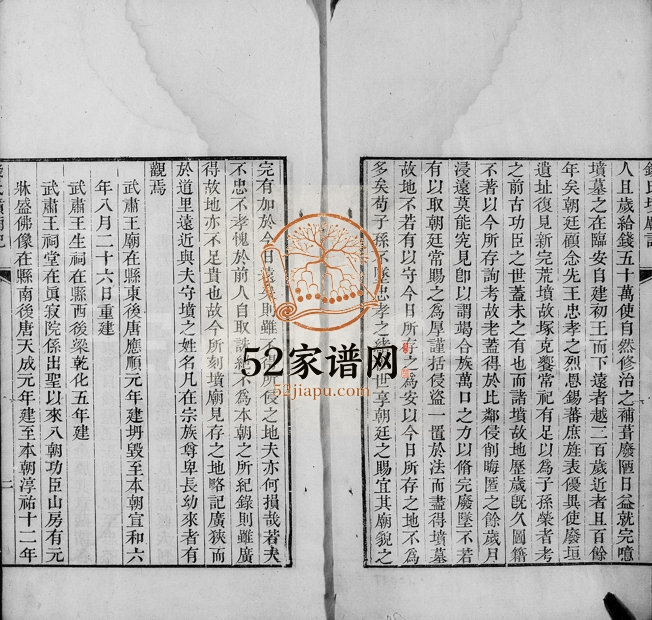 錢氏墳廟記
人且歲給錢五十萬使自然修治之補葺廢陋日益就完噫
墳墓之在臨安自建初王而下遠者越三百歲近者且百餘
年矣朝廷顧念先王忠孝之烈恩錫蕃庶旌表優異使廢垣
遺址復見新完荒墳故塚克饗常祀有足以為子孫榮者考
之前古功臣之世蓋未之有也而諸墳故地歷歲旣久圖籍
不著以今所存詢考故老蓋得於比鄰侵削晦匿之餘歲月
浸遠莫能究見卽以謂竭合族萬口之力以脩完廢墜不若
有以取朝廷常賜之為厚謹括侵盜一置於法而盡得墳墓
故地不若有以守今日所存之為安以今日所存之地不為
多矣荀子孫不墜忠孝之緒世享朝廷之賜宜其廟貌之
完有加於今日遠矣則雖不得所侵之地夫亦何損哉若夫
不忠不孝愧於前人自取誅絕不為本朝之所紀錄則雖廣
得故地亦不足貴也故今所刻墳廟見存之地略記廣狹而
於道里遠近與夫守墳之姓名凡在宗族尊卑長幼來者有
觀焉
武肅王廟在縣東後唐應順元年建坍毀至本朝宣和六
年八月二十六日重建
武肅王生祠在縣西後梁乾化五年建
武肅王祠堂在真寂院係出聖以來八朝功臣山房有元
牀盛佛像在縣南後唐天成元年建至本朝淳祐十二年
二
52家谱网
52jiapu.com